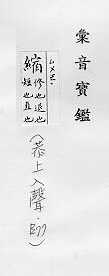 彙音寶鑑
縮
修也退也
短也直也
(恭上入聲.